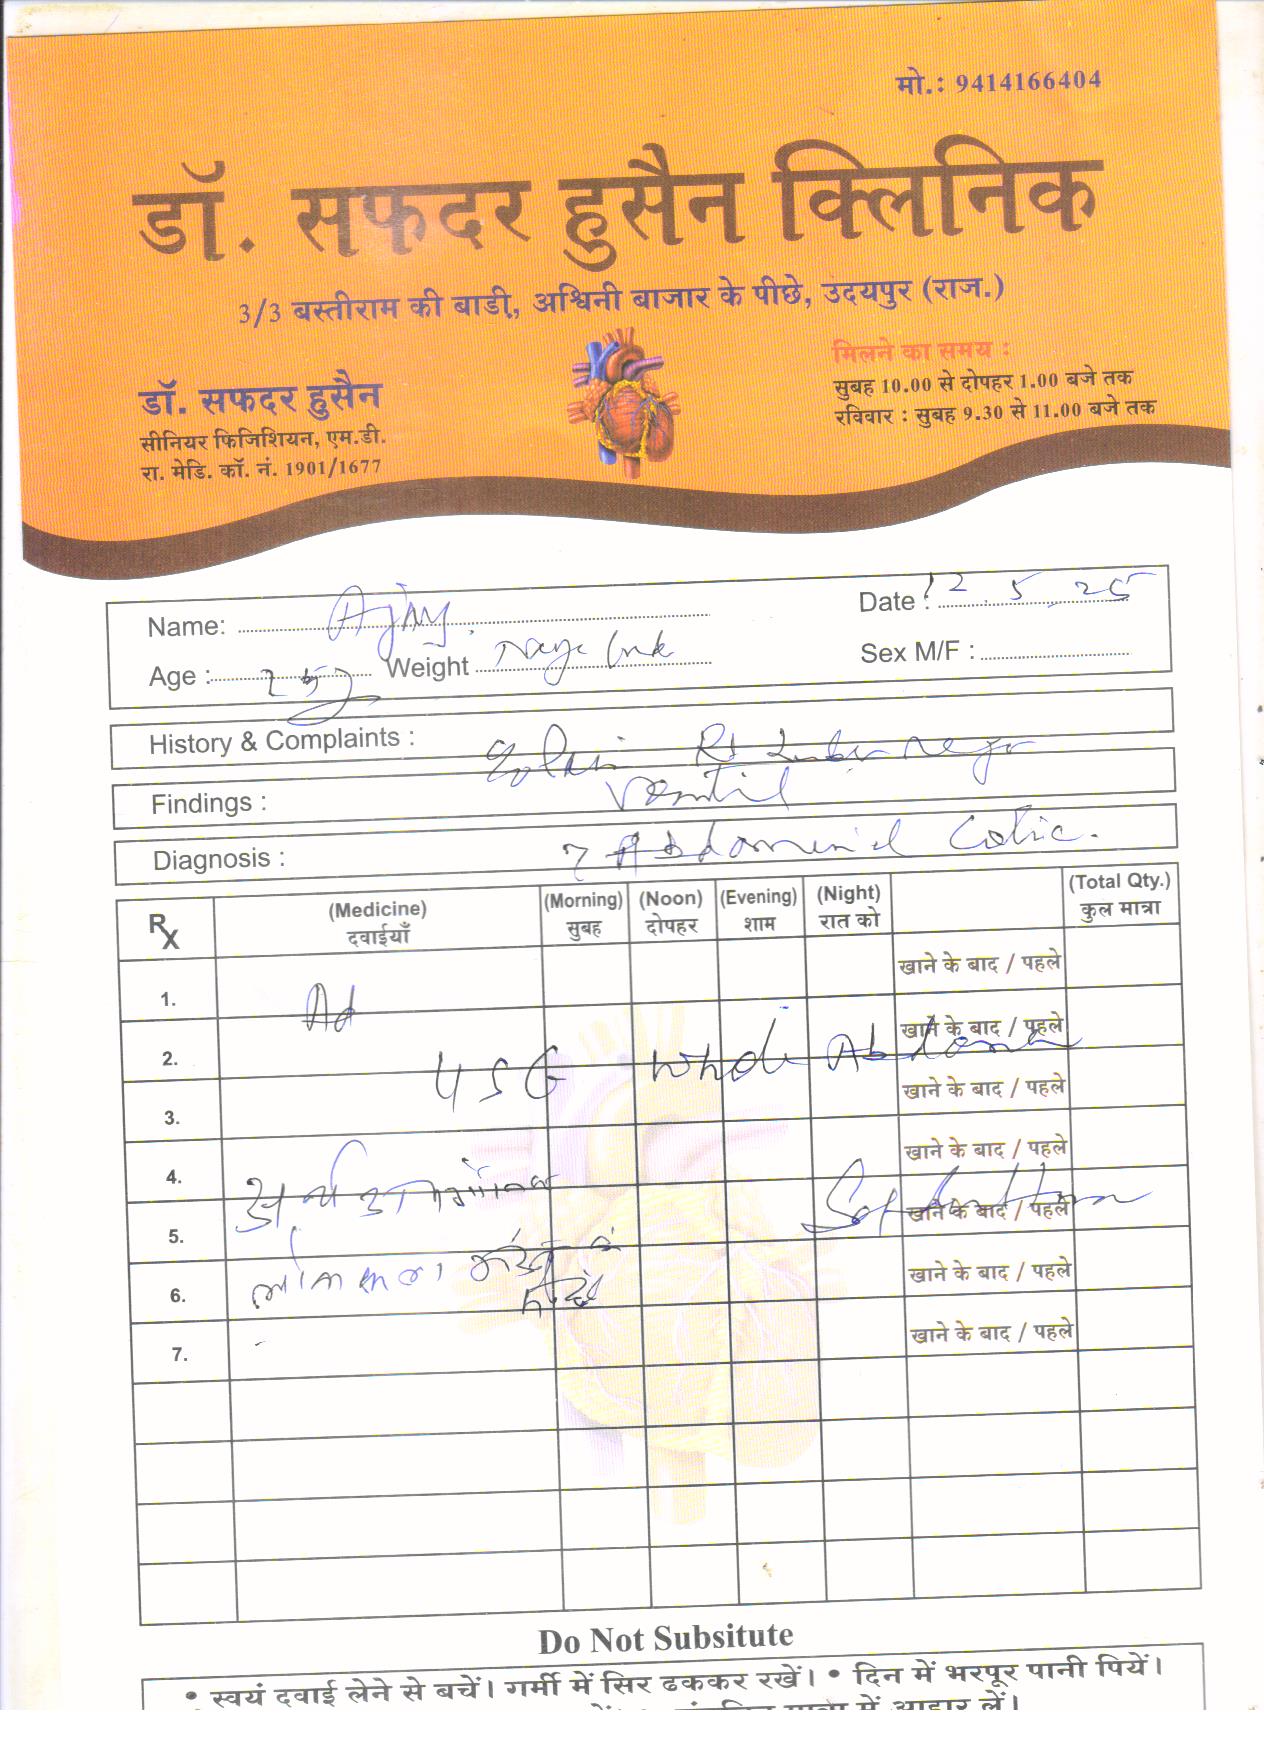 मो.: 9414166404
डॉ. सफदर हुसैन क्लिनिक
3/3 बस्तीराम की बाडी, अश्विनी बाजार के पीछे, उदयपुर (राज.)
डॉ. सफदर हुसैन
सीनियर फिजिशियन, एम.डी.
रा. मेडि. कॉ. नं. 1901/1677
मिलने का समय :
सुबह 10.00 से दोपहर 1.00 बजे तक
रविवार : सुबह 9.30 से 11.00 बजे तक
Name: Ajay. Date : 12.5.25
Age : 25 Weight Sex M/F :
History & Complaints : Rt
Findings :
Diagnosis : ? Abdominal Colic.
Rx (Medicine) दवाईयाँ (Morning) सुबह (Noon) दोपहर (Evening) शाम (Night) रात को (Total Qty.) कुल मात्रा
1. Ad खाने के बाद / पहले
2. USG Whole Abdomen खाने के बाद / पहले
3. खाने के बाद / पहले
4. खाने के बाद / पहले
5. खाने के बाद / पहले
6. खाने के बाद / पहले
7. खाने के बाद / पहले
Do Not Subsitute
• स्वयं दवाई लेने से बचें। गर्मी में सिर ढककर रखें। • दिन में भरपूर पानी पियें।
मात्रा में आहार लें।